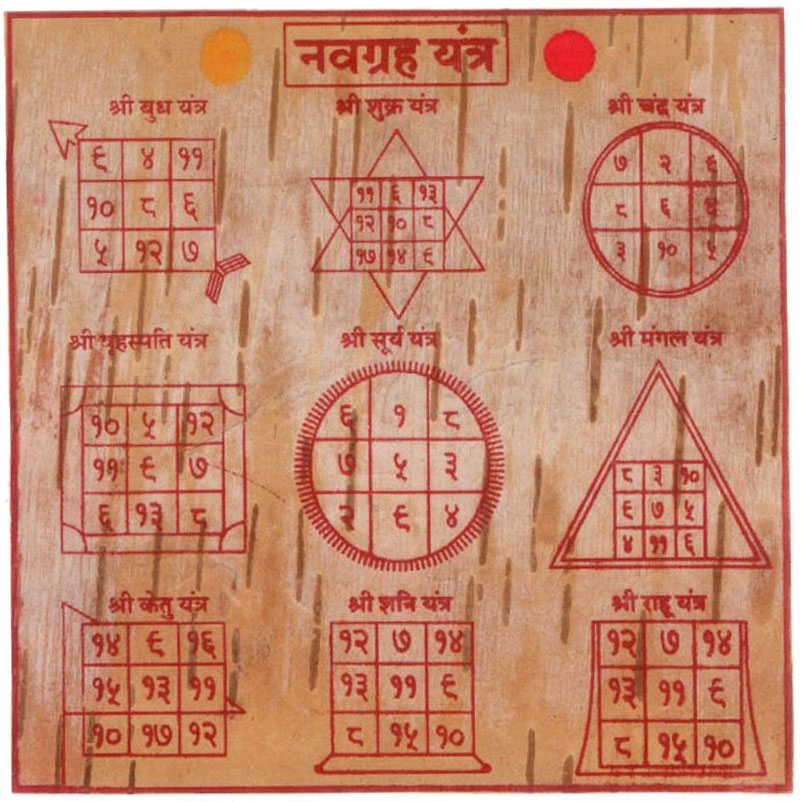 नवग्रह यंत्र
श्री बुध यंत्र
९ ४ ११
१० ८ ६
५ १२ ७
श्री शुक्र यंत्र
११ ६ १३
१२ १० ८
१७ १४ ९
श्री चंद्र यंत्र
७ २ ९
८ ६
३ १० ५
श्री बृहस्पति यंत्र
१० ५ १२
११ ९ ७
६ १३ ८
श्री सूर्य यंत्र
६ १ ८
७ ५ ३
२ ९ ४
श्री मंगल यंत्र
८ ३ १०
९ ७ ५
४ ११ ६
श्री केतु यंत्र
१४ ९ १६
१५ १३ ११
१० १७ १२
श्री शनि यंत्र
१२ ७ १४
१३ ११ ९
८ १५ १०
श्री राहू यंत्र
१२ ७ १४
१३ ११ ९
८ १५ १०